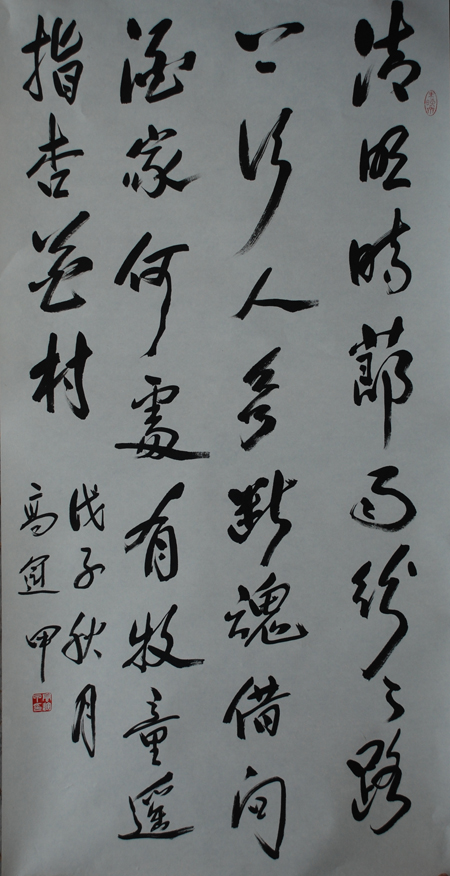 清明時節雨紛々路
上行人欲斷魂借問
酒家何處有牧童遥
指杏花村
戊子秋月
高 甲